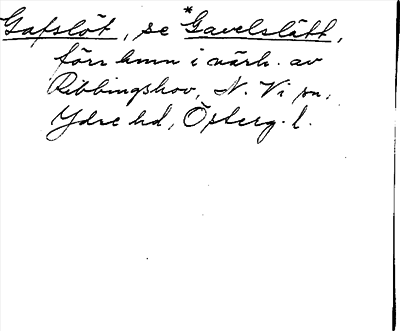 Gafslöt, se *Gavelslätt,
förr hmn i närh. av
Ribbingshov, N. Vi sn,
Ydre hd, Österg. l.